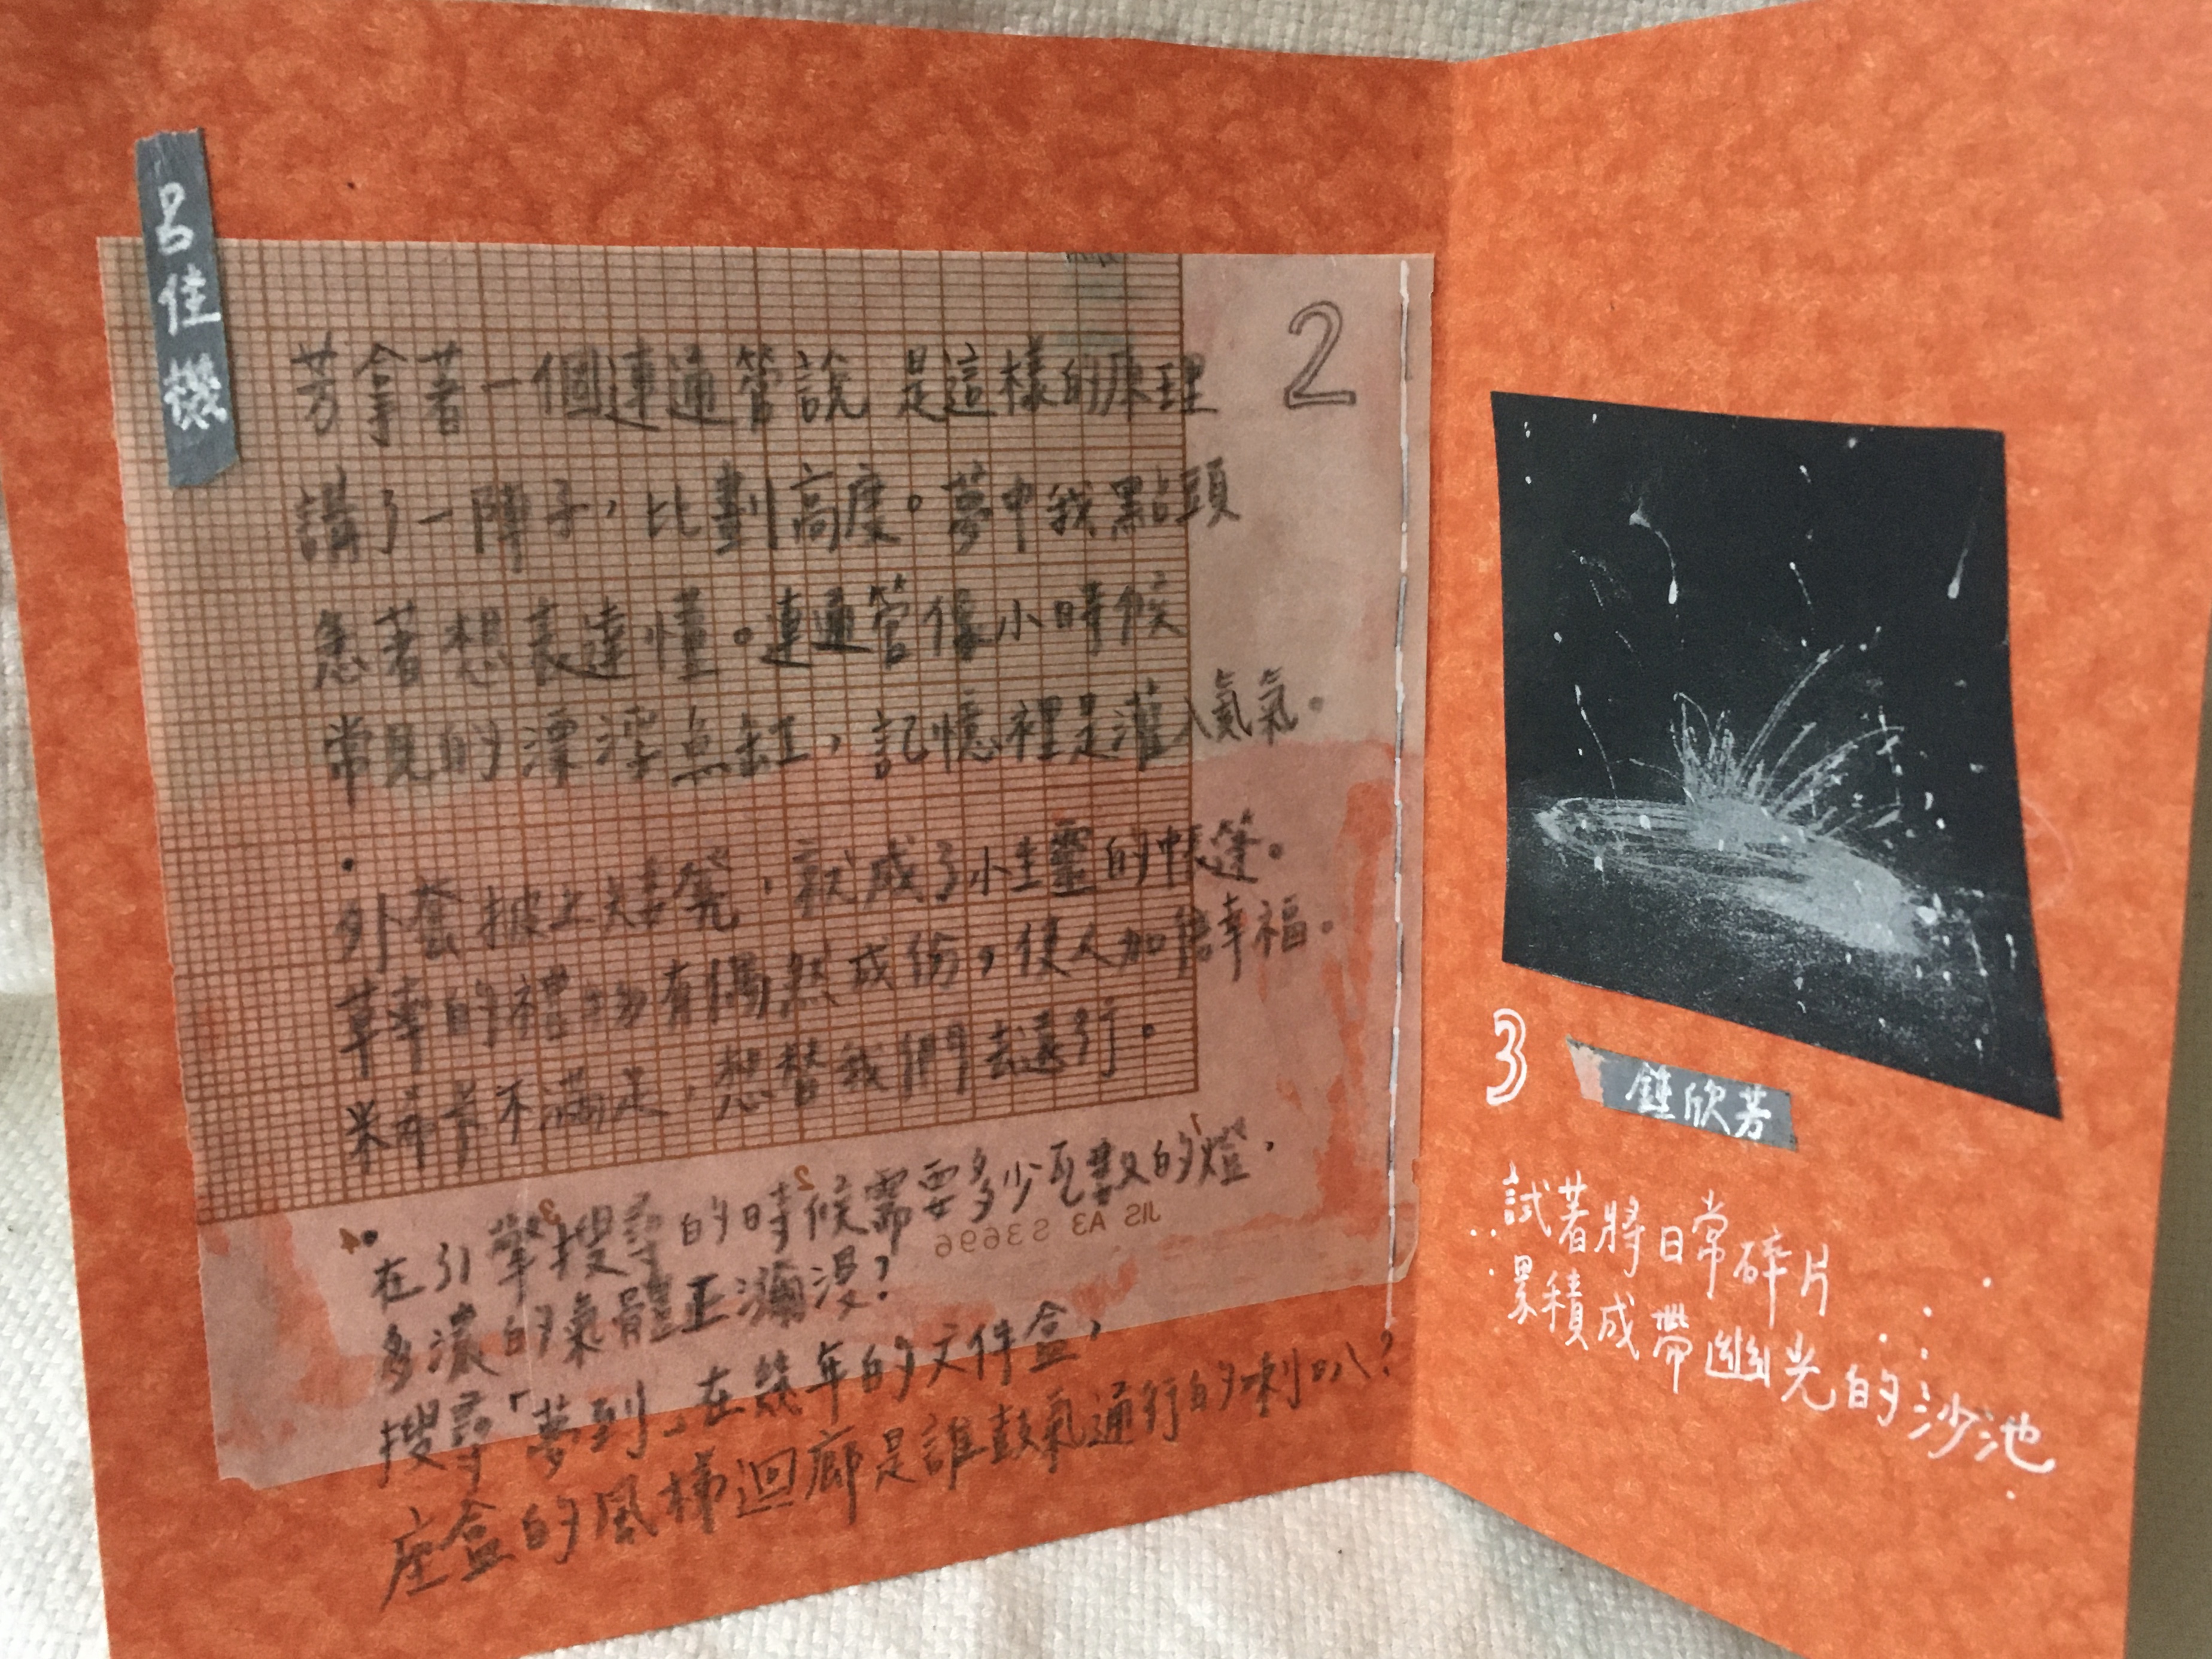 呂佳機
2
芳拿著一個連通管說 是這樣的原理
講了一陣子，比劃高度。夢中我點頭
急著想表達懂。連通管像小時候
常見的漂浮魚缸，記憶裡是灌入氣氣。
•
外套披上矮凳，就成了小生靈的帳篷。
草率的禮物有偶然成份，使人加倍幸福。
米希卡不滿足，想替我們去遠行。
•
在引擎搜尋的時候需要多少瓦數的燈，
多濃的氣體正瀰漫？
搜尋「夢到」在幾年的文件盒，
座盒的風梯迴廊是誰鼓氣通行的喇叭？
1
2
3
4
JIS A3 S3696
3
鍾欣芳
試著將日常碎片
累積成帶幽光的沙池